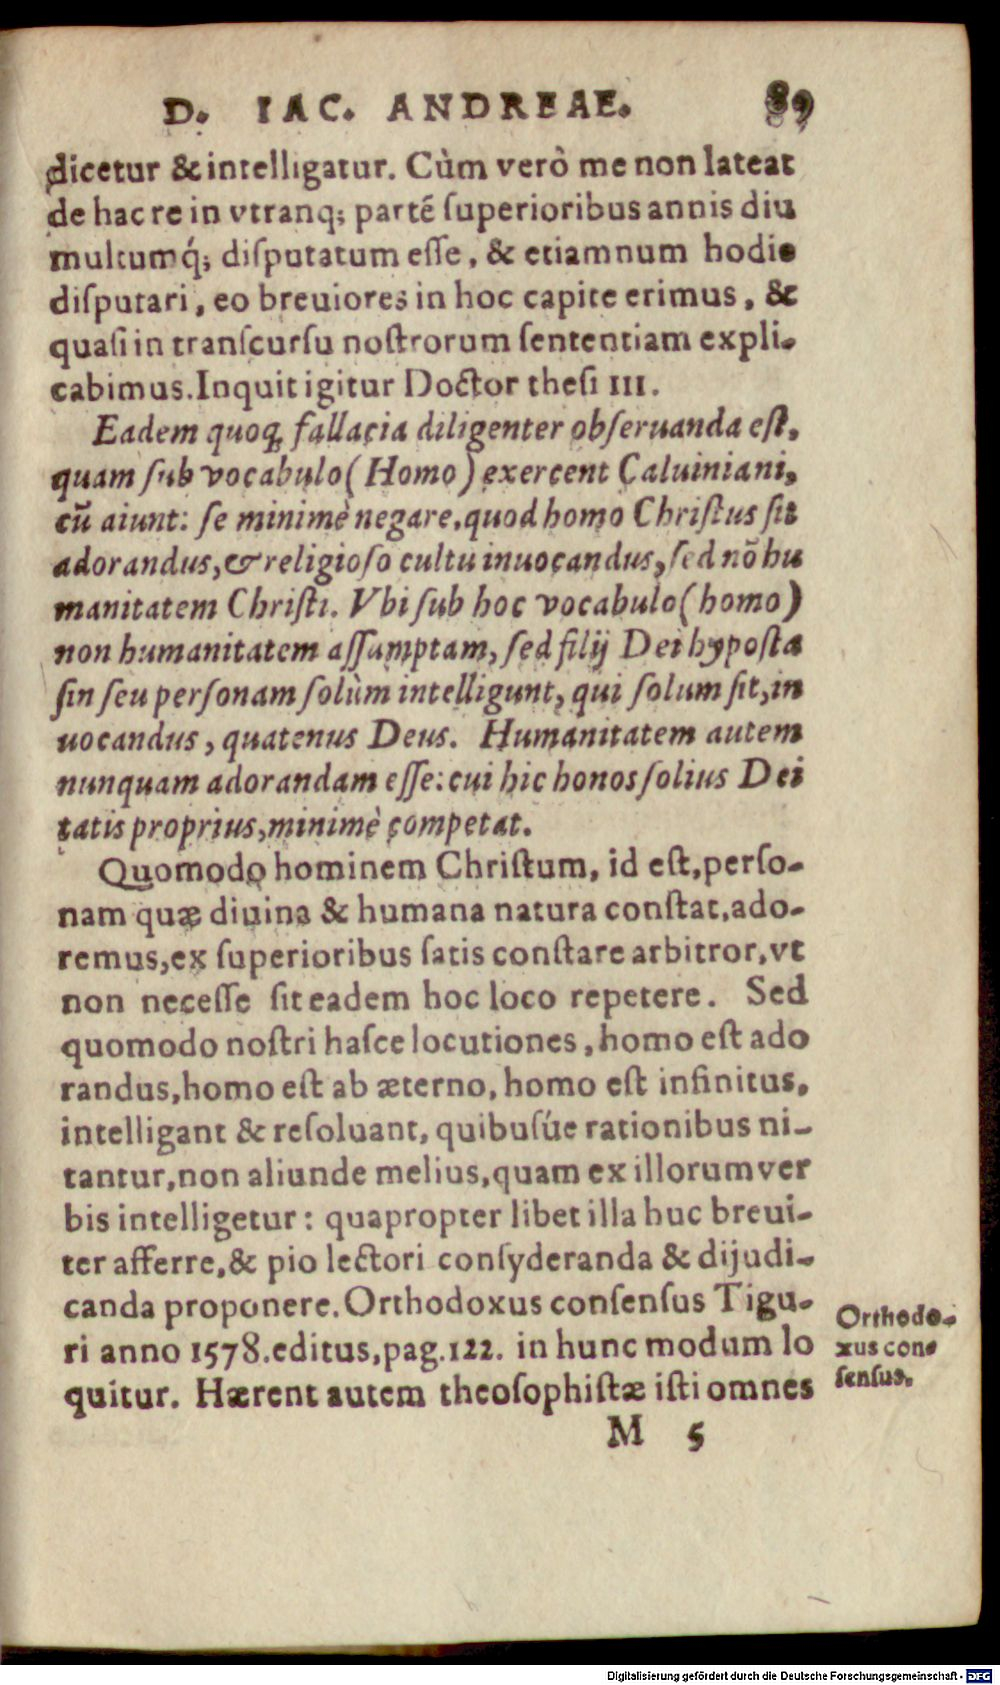 D. IAC. ANDREAE. 89
dicetur & intelligatur. Cùm verò me non lateat
de hac re in vtranq; partē ſuperioribus annis diu
multumq́; diſputatum eſſe, & etiamnum hodie
diſputari, eo breuiores in hoc capite erimus, &
quaſi in tranſcurſu noſtrorum ſententiam expli-
cabimus. Inquit igitur Doctor theſi III.
Eadem quoq; fallacia diligenter obſeruanda eſt,
quam ſub vocabulo (Homo) exercent Caluiniani,
cū aiunt: ſe minimè negare, quod homo Chriſtus ſit
adorandus, & religioſo cultu inuocandus, ſed nō hu
manitatem Chriſti. Vbi ſub hoc vocabulo (homo)
non humanitatem aſſumptam, ſed filij Dei hypoſta
ſin ſeu perſonam ſolùm intelligunt, qui ſolum ſit, in
uocandus, quatenus Deus. Humanitatem autem
nunquam adorandam eſſe: cui hic honos ſolius Dei
tatis proprius, minimè competat.
Quomodo hominem Chriſtum, id eſt, perſo-
nam quæ diuina & humana natura conſtat, ado-
remus, ex ſuperioribus ſatis conſtare arbitror, vt
non neceſſe ſit eadem hoc loco repetere. Sed
quomodo noſtri haſce locutiones, homo eſt ado
randus, homo eſt ab æterno, homo eſt infinitus,
intelligant & reſoluant, quibuſúe rationibus ni-
tantur, non aliunde melius, quam ex illorum ver
bis intelligetur: quapropter libet illa huc breui-
ter afferre, & pio lectori conſyderanda & dijudi-
canda proponere. Orthodoxus conſenſus Tigu-
ri anno 1578. editus, pag. 122. in hunc modum lo
quitur. Hærent autem theoſophiſtæ iſti omnes
Orthodo-
xus con-
ſenſus.
M 5
Digitalisierung gefördert durch die Deutsche Forschungsgemeinschaft - DFG